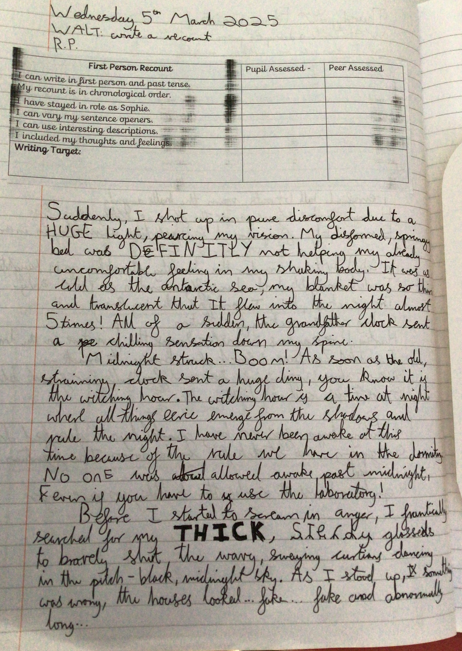 Wednesday 5th March 2025
WALT: write a recount
R.P.
First Person Recount
Pupil Assessed -
Peer Assessed
I can write in first person and past tense.
My recount is in chronological order.
I have stayed in role as Sophie.
I can vary my sentence openers.
I can use interesting descriptions.
I included my thoughts and feelings
Writing Target:
Suddenly, I shot up in pure discomfort due to a
HUGE light, pearcing my vision. My disformed, springy
bed was DEFINITLY not helping my already
uncomfortable feeling in my shaking body. It was as
cold as the antarctic sea, my blanket was so thin
and translucent that It flew into the night almost
5 times! All of a sudden, the grandfather clock sent
a chilling sensation down my spine.
Midnight struck... Boom! As soon as the old,
straining clock sent a huge ding, you know it is
the witching hour. The witching hour is a time at night
where all things eerie emerge from the shadows and
rule the night. I have never been awake at this
time because of the rule we have in the dormitry
No one was allowed awake past midnight,
even if you have to use the laboratory!
Before I started to scream in anger, I frantically
searched for my THICK, sturdy glasses
to bravely shut the wavy, swaying curtians dancing
in the pitch-black, midnight sky. As I stood up, something
was wrong, the houses looked... fake... fake and abnormally
long...